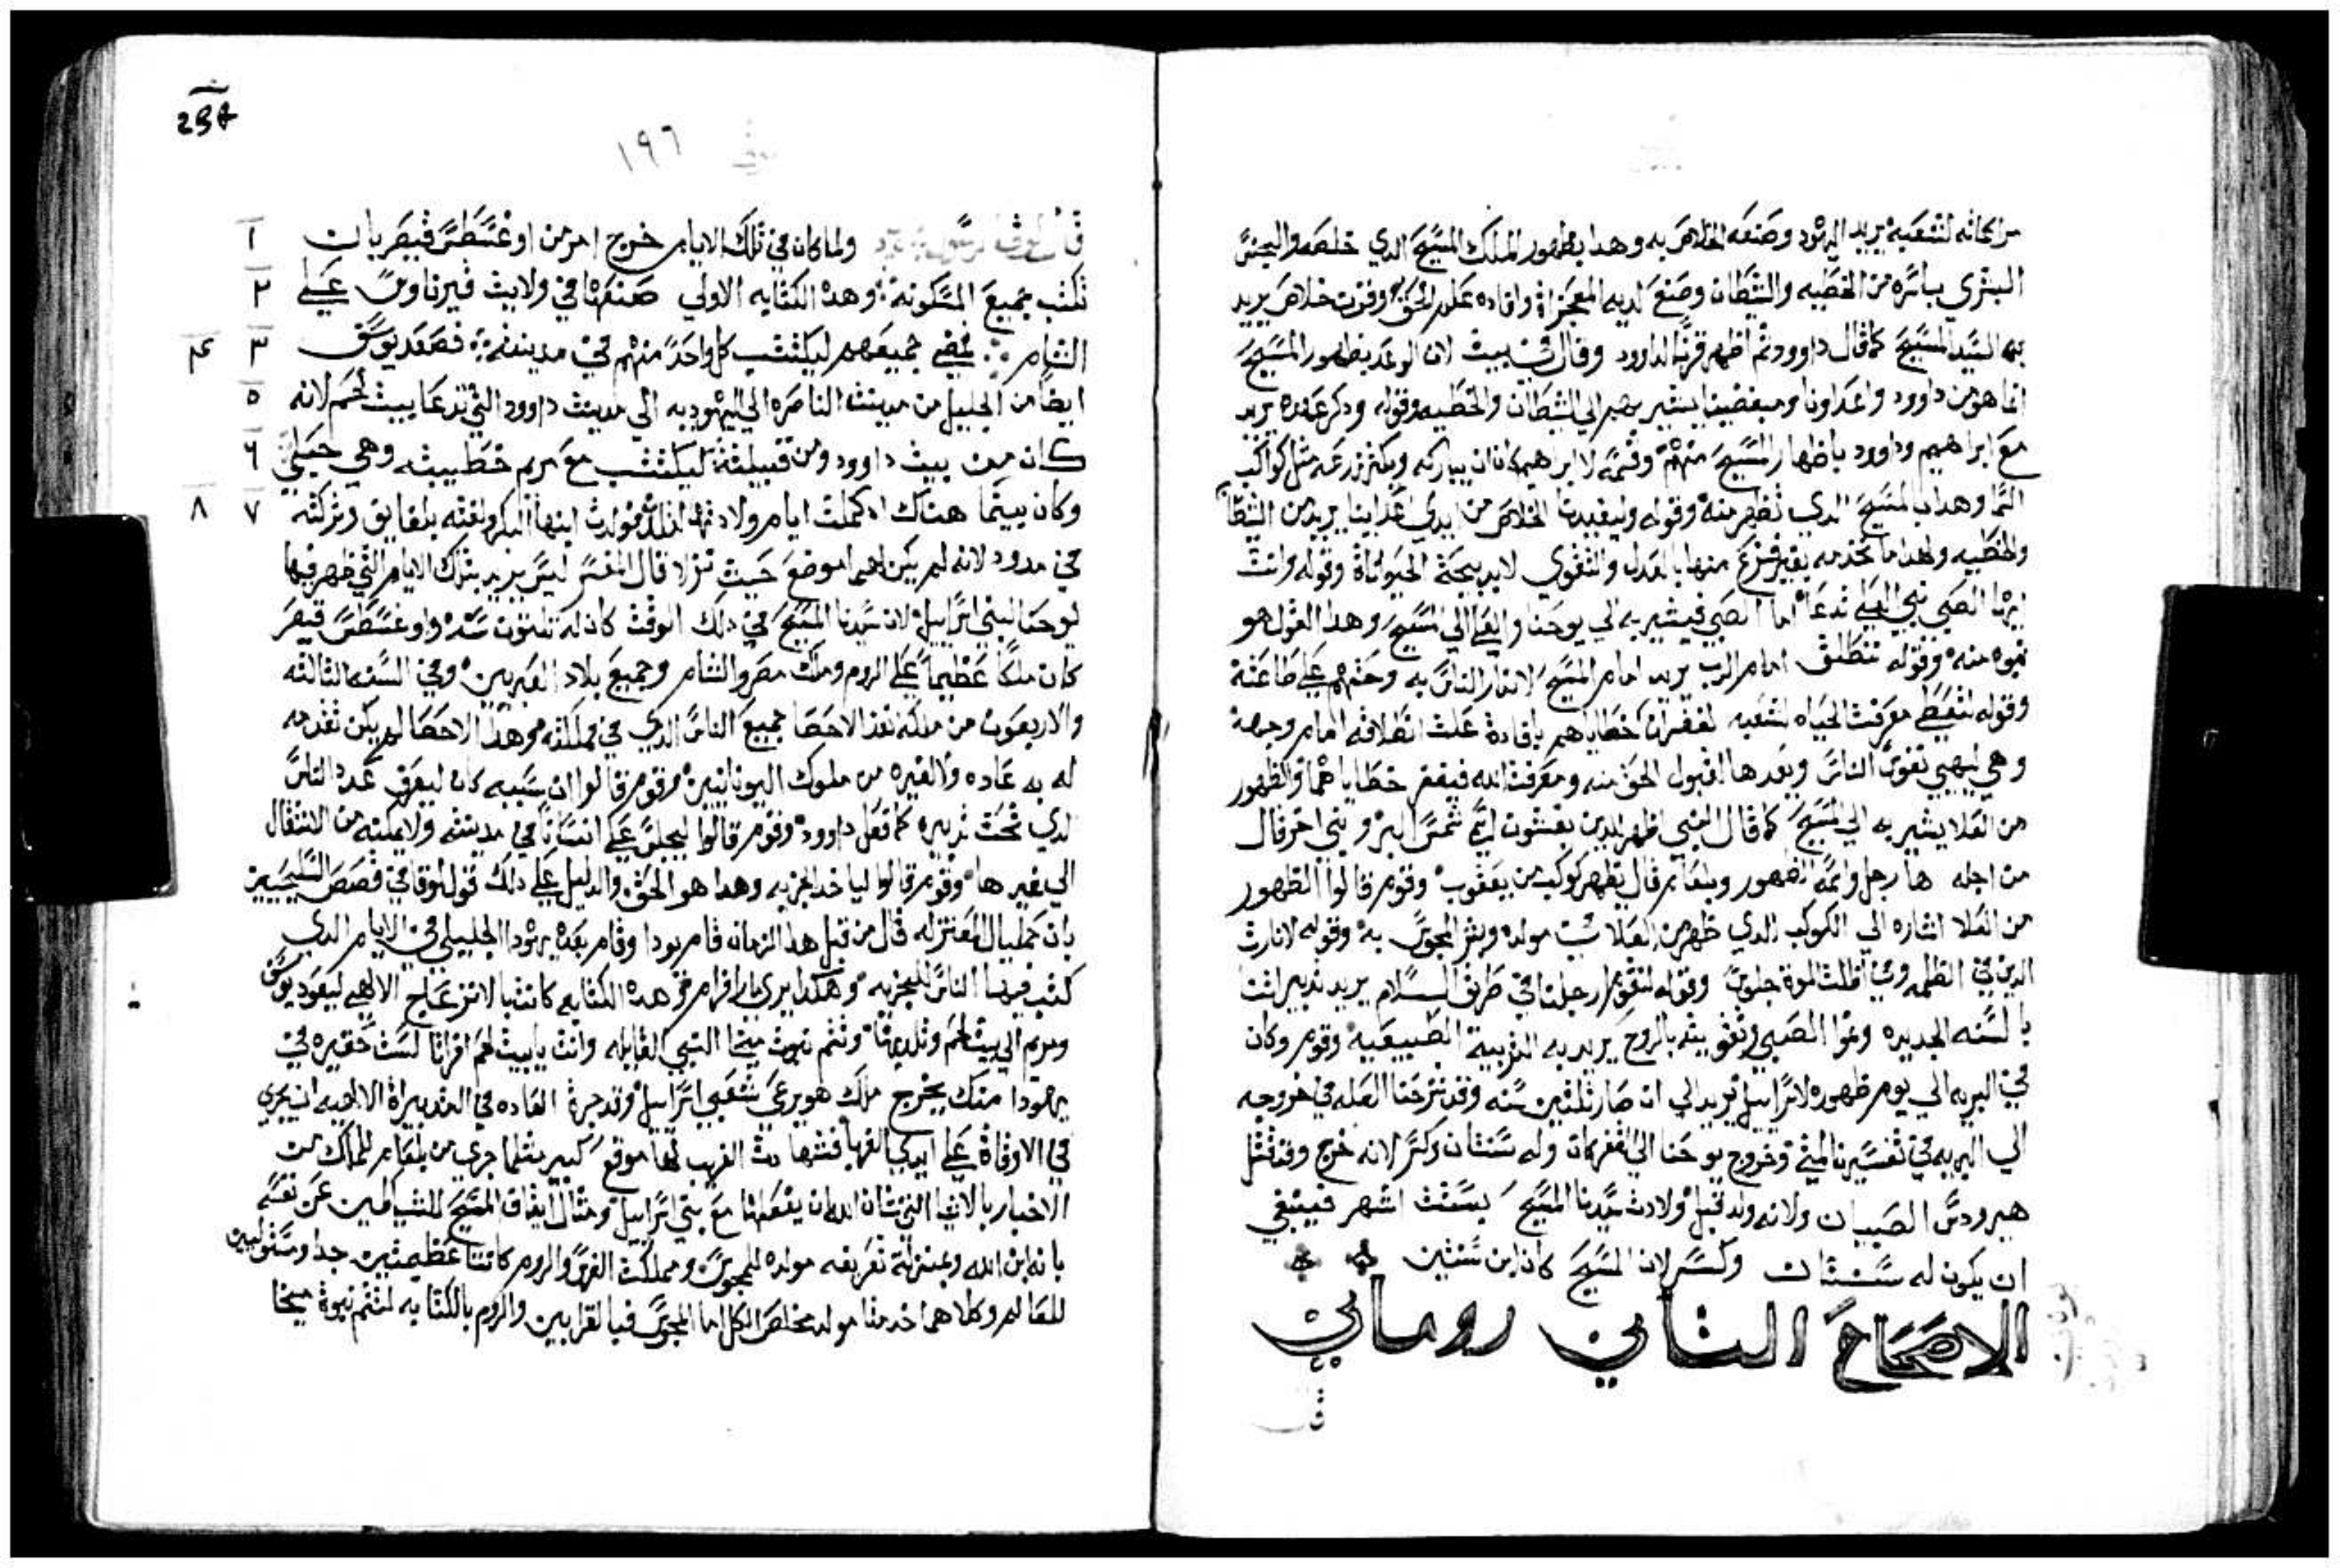 من اجاته لشعبه يريد اليهود وصنعه الخلاص به وهدا بظهور الملك المسيح الدي خلصه والجنس
البشري باسره من الخطيه والشيطان وصنع لديه المعجزاة وافاده علم الحق وقرن خلاص يريد
به السيد المسيح كما قال داوود ثم اظهر قرنا لداوود وقال في بيت لان الوعد بظهور المسيح
انما هو من داوود واعداونا ومبغضينا يشير بهم الي الشيطان والخطيه وقوله ودكر عهده يريد
مع ابراهيم وداوود باظهار المسيح منهم وقسمه لابراهيم كان ان يباركه ويكثر زرعه مثل كواكب
السما وهدا بالمسيح الدي ظهر منه وقوله وليفيدنا الخلاص من ايدي اعداينا يريد من الشيطان
والخطيه ولهدا ما نخدمه بغير فزع منها بالعدل والتقوي لابد بجحة الحيواناة وقوله وانت
ايها الصبي نبي العلي تدعا اما الصبي فيشير به الي يوحنا والعلي الي المسيح وهدا القول هو
نبوه منه وقوله تنطلق امام الرب يريد امام المسيح لاندار الناس به وحتهم علي طاعته
وقوله لتعطي معرفت الحياه لشعبه لغفران خطاياهم بافادة علت انطلاقه امام وجهه
وهي ليهيي نفوس الناس ويعدها لقبول الحق منه ومعرفت الله فيغفر خطاياهم والظهور
من العلا يشير به الي المسيح كما قال النبي اظهر للدين يخشون اسمي شمس البر ونبي اخر قال
من اجله ها رجل واسمه الظهور وبلعام قال يظهر كوكب من يعقوب وقوم قالوا الظهور
من العلا اشاره الي الكوكب الدي ظهر من العلا مولده وبشر المجوس به وقوله لانارت
الدين في الظلمه وفي ظلت الموة جلوس وقوله لتقوم ارجلنا في طريق السلام يريد تدبير انتا
بالسنه الجديده ونموا الصبي وتقويته بالروح يريد به التربية الطبيعيه وقوم وكان
في البريه الي يوم ظهوره لاسراييل يريد الي ان صار ثلثين سنه وقد شرحنا العله في خروجه
الي البريه في تفسيرنا لمتي وخروج يوحنا الي القفر كان وله سنتان وكسر لانه خرج وقد قتل
هيرودس الصبيان ولانه ولد قبل ولادت سيدنا المسيح بستت اشهر فينبغي
ان يكون له سنتان وكسر لان المسيح كان ابن سنتين
الاصحاح الثاني روماني
قال
298
١٩٦
قال لوقا الرسول ولما كان في تلك الايام خرج امر من اوغسطس قيصر بان ١
تكتب جميع المسكونة وهده الكتابه الاولي صنعتها في ولايت قيرناوس علي ٢
الشام فمضي جميعهم ليكتتب كل واحد منهم في مدينته فصعد يوسف ٣ ٤
ايضا من الجليل من مدينت الناصره الي اليهوديه الي مدينت داوود التي تدعا بيت لحم لانه ٥
كان من بيت داوود ومن قبيلته ليكتتب مع مريم خطيبته وهي حبلي ٦
وكان بينما هناك اد كملت ايام ولادتها لتلد فولدت ابنها البكر ولفته بلفايق وتركته ٧ ٨
في مدود لانه لم يكن لهما موضع حيث نزلا قال المفسر ليس يريد بتلك الايام التي ظهر فيها
يوحنا لبني اسراييل لان سيدنا المسيح في دلك الوقت كان له تلتون سنه واوغسطس قيصر
كان ملكا عظيما علي الروم وملك مصر والشام وجميع بلاد الغربيين وفي السنه الثالثه
والاربعون من ملكه نفذ الاحصا لجميع الناس الدي في مملكته وهدا الاحصا لم يكن تقدمه
له به عاده ولا لغيره من ملوك اليونانيين وقوم قالوا ان سببه كان ليعرف عدد الناس
لدي تحت تدبيره كما فعل داوود وقوم قالوا ليجلس علي انسانا في مدينته ولا يمكنه من الانتقال
الي غيرها وقوم قالوا لياخد الجزيه وهدا هو الحق والدليل علي دلك قول لوقا في قصص السليحيين
بان جمليال المعتزله قال من قبل هدا الزمان قام يودا وقام بعده يهودا الجليلي في الايام الدي
كتب فيها الناس للجزيه وهكدا يري مار افرام وهده الكتابه كانت بالانزعاج الالهي ليعود يوسف
ومريم الي بيت لحم وتلد هنا وتتم نبوت ميخا النبي القايله وانت يا بيت لحم افراتا لست حقيره في
يهودا منك يخرج ملك هو يرعي شعبي اسراييل وقد جرة العاده في التدبيراة الالهيه ان يجري
في الاوقاة علي ايدي الغربا فتنها مت الغريب لها موقع كبير مثلما جري من بلعام للملاك من
الاخبار بالاشيا التي شان الله ان يفعلها مع بني اسراييل ومثال ايقاق المسيح للشياطين عن نفسه
بانه ابن الله وبمنزلة تعريفه مولده للمجوس ومملكت الفرس والروم كانتا عظيمتين جدا ومستوليين
للعالم وكلاهما خدمتا مولد مخلص الكل اما المجوس فبالقرابين والروم بالكتابه لتتم نبوة ميخا